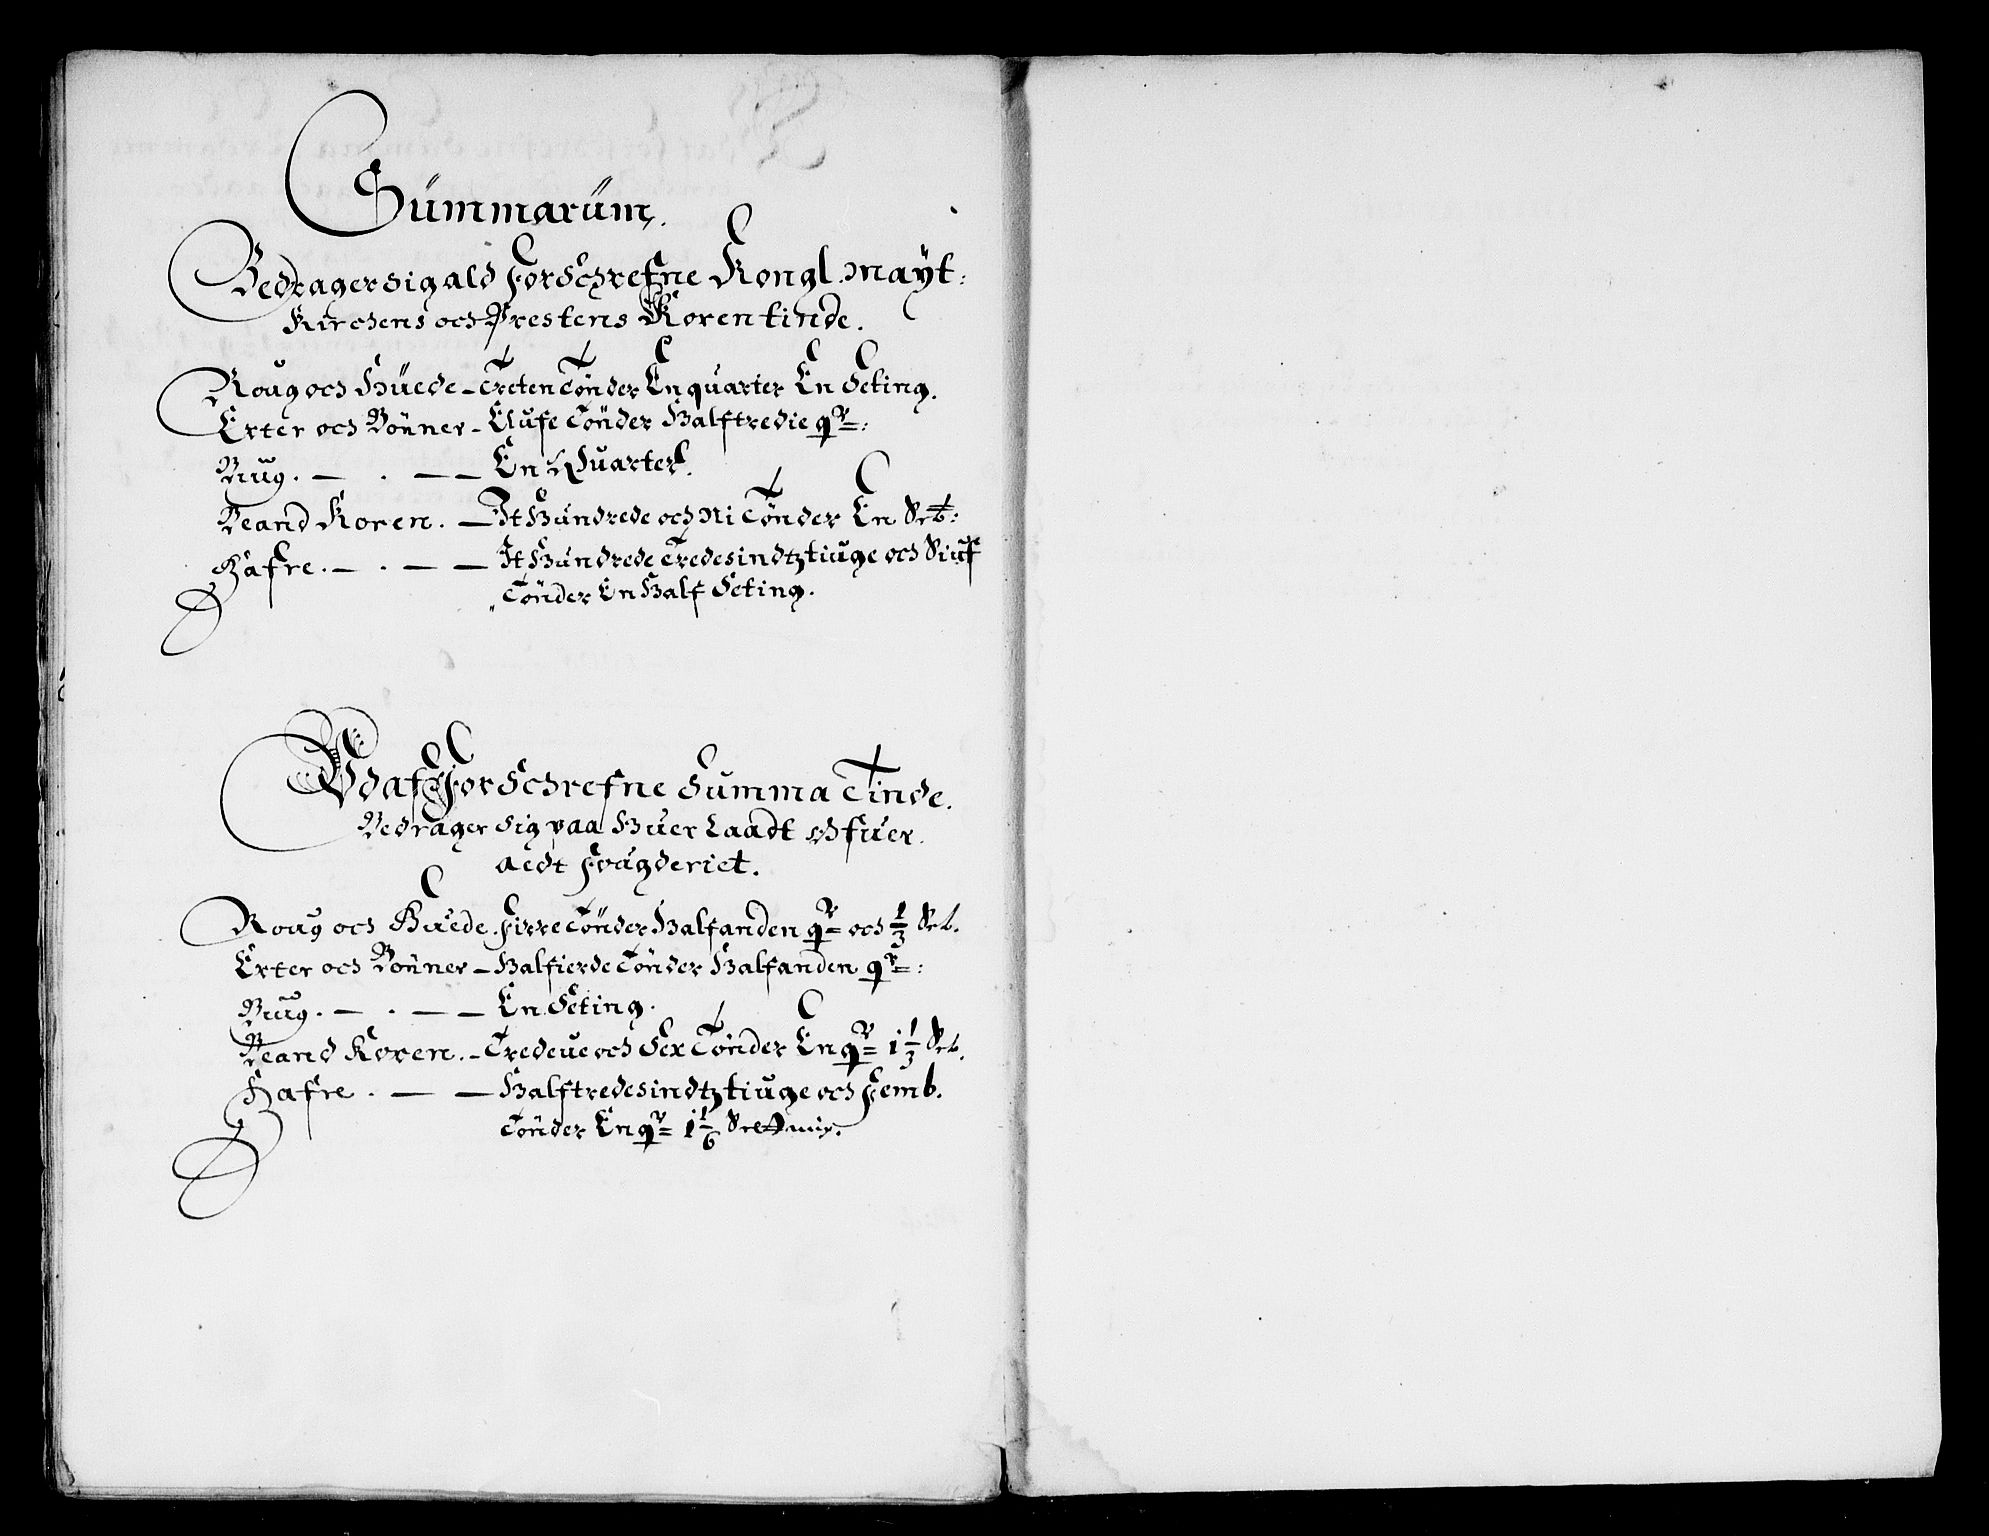 Summarum,
Bedrager sig ald forschrefne Kongl. Mayt:
Kirchens och Prestens Korentinde.
Roug och Huede – Treten Tönder En quarter En Seting.
Erter och Bönner – Elufe Tönder Halftredie qr:
Bug. – . – – En Quarter.
Beand Koren. – It Hundrede och Ni Tönder En Set:
Hafre. – . – – It Hundrede Tredesindtztiuge och Siuf
Tönder En Half Seting.
Vdaf Forschrefne Summa Tinde.
Bedrager sig paa Huer Laadt Ofuer
aedt Fougderiet.
Roug och Huede. Firre Tönder Halfanden qr och 1/3 Set.
Erter och Bönner – Halfierde Tönder Halfanden qr:
Bug. – . – – En Seting.
Beand Koren. – Tredeue och Sex Tönder En qr 1 1/3 Set.
Hafre. – – Halftredesindtztiuge och Femb.
Tönder En qr 1 1/6